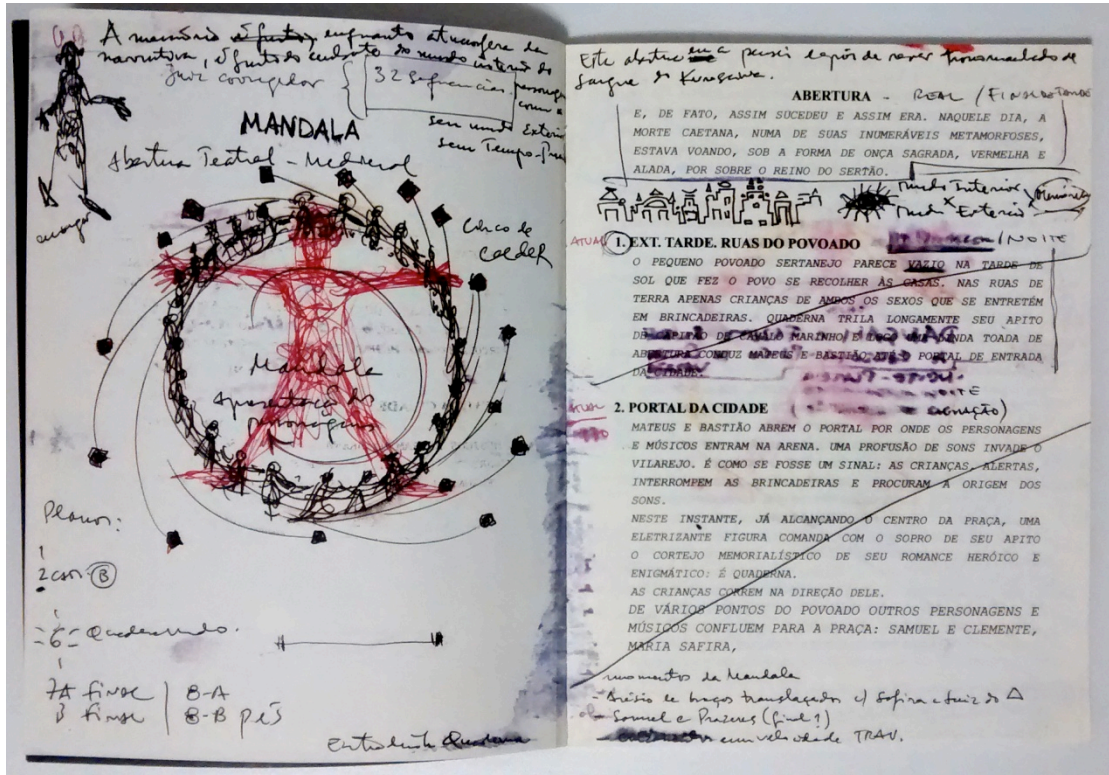 A memória enquanto atmosfera da
narrativa,
juiz corregedor
32 sequencias
personagem
com o
seu mundo Exterior
seu Tempo-
MANDALA
Abertura Teatral - Medieval
Circo de
Calder
Mandala
Apresentação dos
personagens
Planos:
1
2 B
-6- Quadernando.
7A final | 8-A
B final | 8-B pés
Quaderna
Este abertura eu a pensei depois de rever
Sangue do Kurosawa.
ABERTURA - REAL / FINAL DE TARDE
E, DE FATO, ASSIM SUCEDEU E ASSIM ERA. NAQUELE DIA, A
MORTE CAETANA, NUMA DE SUAS INUMERÁVEIS METAMORFOSES,
ESTAVA VOANDO, SOB A FORMA DE ONÇA SAGRADA, VERMELHA E
ALADA, POR SOBRE O REINO DO SERTÃO.
Mundo Interior
x
Mundo Exterior
ATUAL
1. EXT. TARDE. RUAS DO POVOADO /NOITE
O PEQUENO POVOADO SERTANEJO PARECE VAZIO NA TARDE DE
SOL QUE FEZ O POVO SE RECOLHER ÀS CASAS. NAS RUAS DE
TERRA APENAS CRIANÇAS DE AMBOS OS SEXOS QUE SE ENTRETÉM
EM BRINCADEIRAS. QUADERNA TRILA LONGAMENTE SEU APITO
DE CAPITÃO DE CAVALO MARINHO E LOGO UMA LINDA TOADA DE
ABERTURA CONDUZ MATEUS E BASTIÃO ATÉ O PORTAL DE ENTRADA
DA CIDADE.
NOITE
ATUAL
2. PORTAL DA CIDADE
MATEUS E BASTIÃO ABREM O PORTAL POR ONDE OS PERSONAGENS
E MÚSICOS ENTRAM NA ARENA. UMA PROFUSÃO DE SONS INVADE O
VILAREJO. É COMO SE FOSSE UM SINAL: AS CRIANÇAS, ALERTAS,
INTERROMPEM AS BRINCADEIRAS E PROCURAM A ORIGEM DOS
SONS.
NESTE INSTANTE, JÁ ALCANÇANDO O CENTRO DA PRAÇA, UMA
ELETRIZANTE FIGURA COMANDA COM O SOPRO DE SEU APITO
O CORTEJO MEMORIALÍSTICO DE SEU ROMANCE HERÓICO E
ENIGMÁTICO: É QUADERNA.
AS CRIANÇAS CORREM NA DIREÇÃO DELE.
DE VÁRIOS PONTOS DO POVOADO OUTROS PERSONAGENS E
MÚSICOS CONFLUEM PARA A PRAÇA: SAMUEL E CLEMENTE,
MARIA SAFIRA,
momentos da Mandala
- Arésio de braços c/ Safira e Luiz do
Samuel e Prazeres (final?)
em velocidade TRAV.